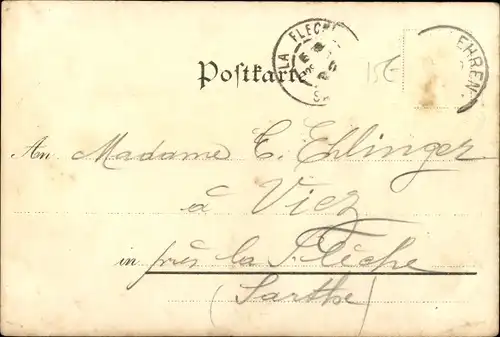 LA FLECHE
EHREN
Postkarte
15E
An Madame C. Ehlinger
à Viez
in près la Flèche
(Sarthe)